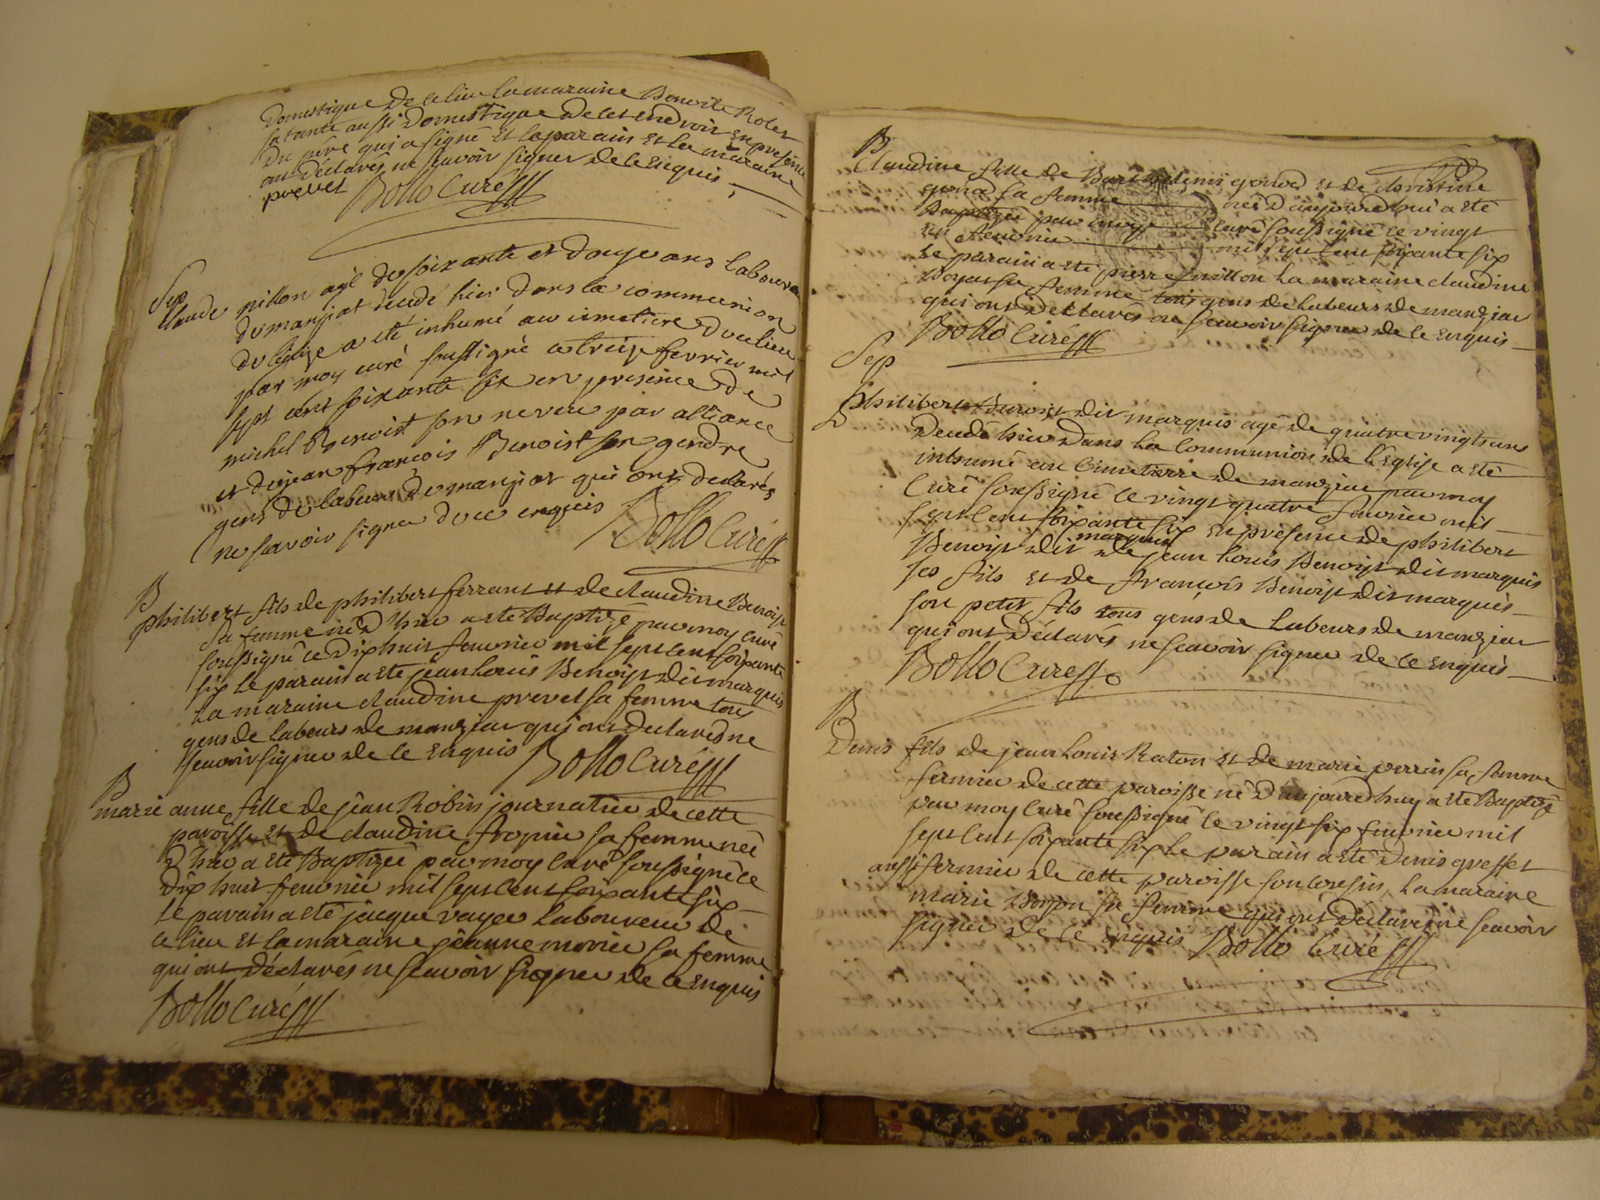 Domestique de ce lieu la maraine Benoite Rolet
sa tante aussi domestique de cet endroit en presence
du pere qui a signé et le parain et la maraine
ont déclarés ne sçavoir signer de ce enquis
prevet Bollo Curé
B
Sep
Claude pillon agé de soixante et douze ans laboureur
de manziat decedé hier dans la communion
de l'eglise a eté inhumé au cimetiere du lieu
par moy curé soussigné ce treize fevrier mil
sept cent soixante six en presence de
michel Benoist son neveu par alliance
et de jean francois Benoist son gendre
gens de labeurs de manziat qui ont declarés
ne scavoir signer de ce enquis Bollo Curé
B
philibert fils de philibert ferrant et de claudine Benoist
sa femme né d'hier a eté Baptizé par moy curé
soussigné ce dixhuit feuvrier mil sept cent soixante
six Le parain a eté jean Louis Benoist dit marquis
La maraine claudine prevet sa femme tous
gens de labeurs de manziat qui ont declaré ne
sçavoir signer de ce enquis Bollo Curé
B
marie anne fille de jean Robin journalier de cette
paroisse et de claudine fropier sa femme neé
d'hier a eté Baptizeé par moy curé soussigné ce
dixhuit feuvrier mil sept cent soixante six
Le parain a eté jacque voyer Laboureur de
ce lieu et la maraine jeanne monier sa femme
qui ont déclarés ne sçavoir signer de ce enquis
Bollo Curé
B
Claudine fille de gonod et de christine
gonod sa femme neé d'aujourd'hui a eté
Baptizeé par moy curé soussigné ce vingt
feuvrier mil sept cent soixante six
Le parain a eté pierre la maraine claudine
sa femme tous gens de labeurs de manziat
qui ont déclarés ne sçavoir signer de ce enquis
Bollo Curé
Sep
philibert Benoist dit marquis agé de quatre vingts ans
decedé hier dans La Communion de L'Eglise a eté
inhumé au Cimetierre de manziat par moy
Curé soussigné ce vingt quatre feuvrier mil
sept cent soixante six en présence de philibert
Benoist dit marquis de jean Louis Benoist dit marquis
ses fils et de francois Benoist dit marquis
son petit fils tous gens de Labeurs de manziat
qui ont déclarés ne sçavoir signer de ce enquis
Bollo Curé
B
Denis fils de jean Louis Raton et de marie perrin sa femme
fermier de cette paroisse né d'aujourd'huy a eté Baptizé
par moy Curé soussigné le vingt six feuvrier mil
sept cent soixante six Le parain a eté Denis greffet
aussi fermier de cette paroisse son cousin La maraine
marie sa femme qui ont déclaré ne scavoir
signer de ce enquis Bollo Curé